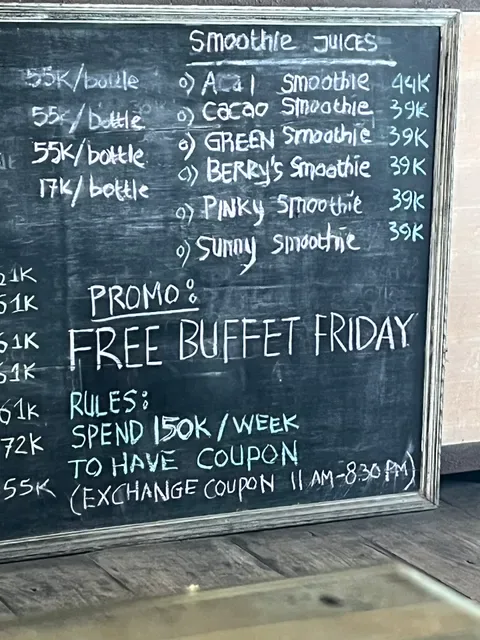 Smoothie JUICES
55K/bottle
55K/bottle
55K/bottle
17K/bottle
o) Acai Smoothie 44K
o) CACAO Smoothie 39K
o) GREEN Smoothie 39K
o) BERRY'S Smoothie 39K
o) PINKY Smoothie 39K
o) Sunny Smoothie 39K
21K
51K
51K
61K
61K
72K
55K
PROMO:
FREE BUFFET FRIDAY
RULES:
SPEND 150K/WEEK
TO HAVE COUPON
(EXCHANGE COUPON 11 AM-8.30 PM)